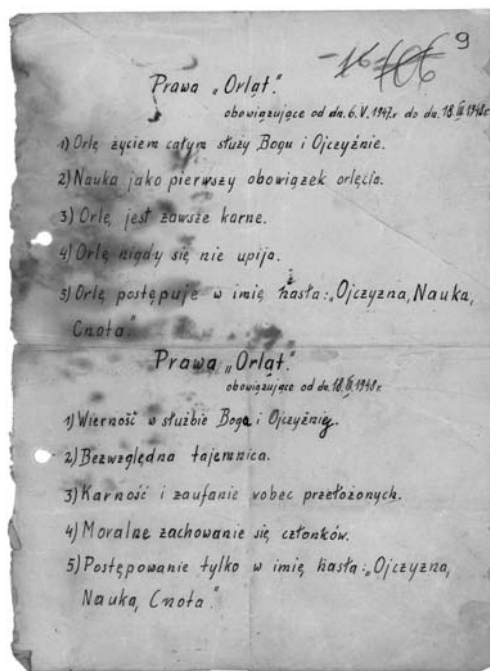 9
-16 106
Prawa „Orląt."
obowiązujące od dn. 6. V. 1947.r do dn. 18.II.1948r.
1) Orlę życiem całym służy Bogu i Ojczyźnie.
2) Nauka jako pierwszy obowiązek orlęcia.
3) Orlę jest zawsze karne.
4) Orlę nigdy się nie upija.
5) Orlę postępuje w imię hasła: „Ojczyzna, Nauka,
Cnota."
Prawa „Orląt."
obowiązujące od dn. 18.II.1948r.
1) Wierność w służbie Boga i Ojczyźnie.
2) Bezwzględna tajemnica.
3) Karność i zaufanie wobec przełożonych.
4) Moralne zachowanie się członków.
5) Postępowanie tylko w imię hasła: „Ojczyzna,
Nauka, Cnota."